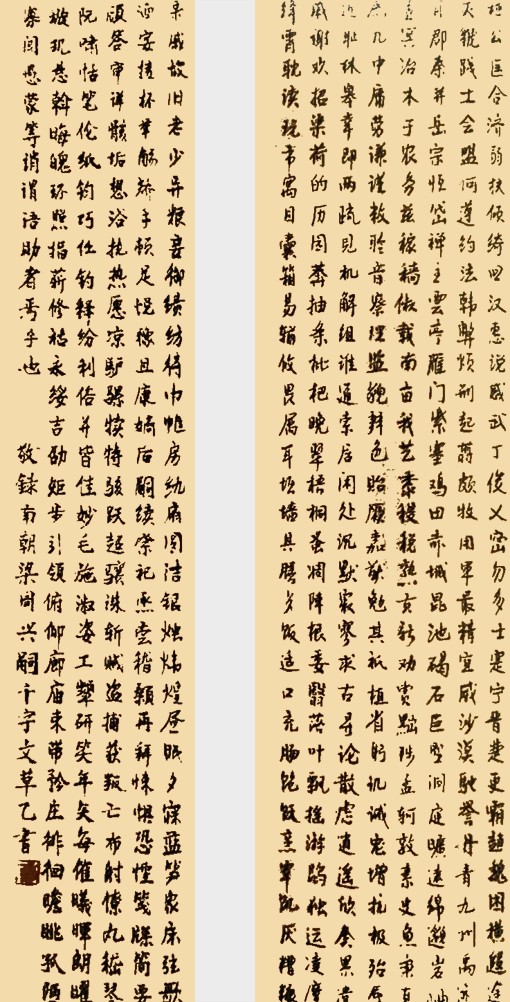 桓公匡合济弱扶倾绮回汉惠说感武丁俊乂密勿多士寔宁晋楚更霸赵魏困横假途
灭虢践土会盟何遵约法韩弊烦刑起翦颇牧用军最精宣威沙漠驰誉丹青九州禹迹
百郡秦并岳宗恒岱禅主雲亭雁门紫塞鸡田赤城昆池碣石巨野洞庭曠远绵邈岩岫
杳冥治本于农务兹稼穑俶载南亩我艺黍稷税熟贡新劝赏黜陟孟轲敦素史鱼秉直
庶几中庸劳谦谨敕聆音察理鉴貌辨色贻厥嘉猷勉其祗植省躬讥诫宠增抗极殆辱
近耻林皋幸即两疏见机解组谁逼索居闲处沉默寂寥求古寻论散虑逍遥欣奏累遣
戚谢欢招渠荷的历园莽抽条枇杷晚翠梧桐蚤凋陈根委翳落叶飘摇游鹍独运凌摩
绛霄耽读玩市寓目囊箱易輶攸畏属耳垣墙具膳飧饭适口充肠饱饫烹宰饥厌糟糠
亲戚故旧老少异粮妾御绩纺侍巾帷房纨扇圆洁银烛炜煌昼眠夕寐蓝笋象床弦歌
酒宴接杯举觞矫手顿足悦豫且康嫡后嗣续祭祀烝尝稽颡再拜悚惧恐惶笺牒简要
顾答审详骸垢想浴执热愿凉驴骡犊特骇跃超骧诛斩贼盗捕获叛亡布射僚丸嵇琴
阮啸恬笔伦纸钧巧任钓释纷利俗并皆佳妙毛施淑姿工颦研笑年矢每催曦晖朗曜
旋玑悬斡晦魄环照指薪修祜永绥吉劭矩步引领俯仰廊庙束带矜庄徘徊瞻眺孤陋
寡闻愚蒙等诮谓语助者焉乎也 敬録南朝梁周兴嗣千字文草乙书